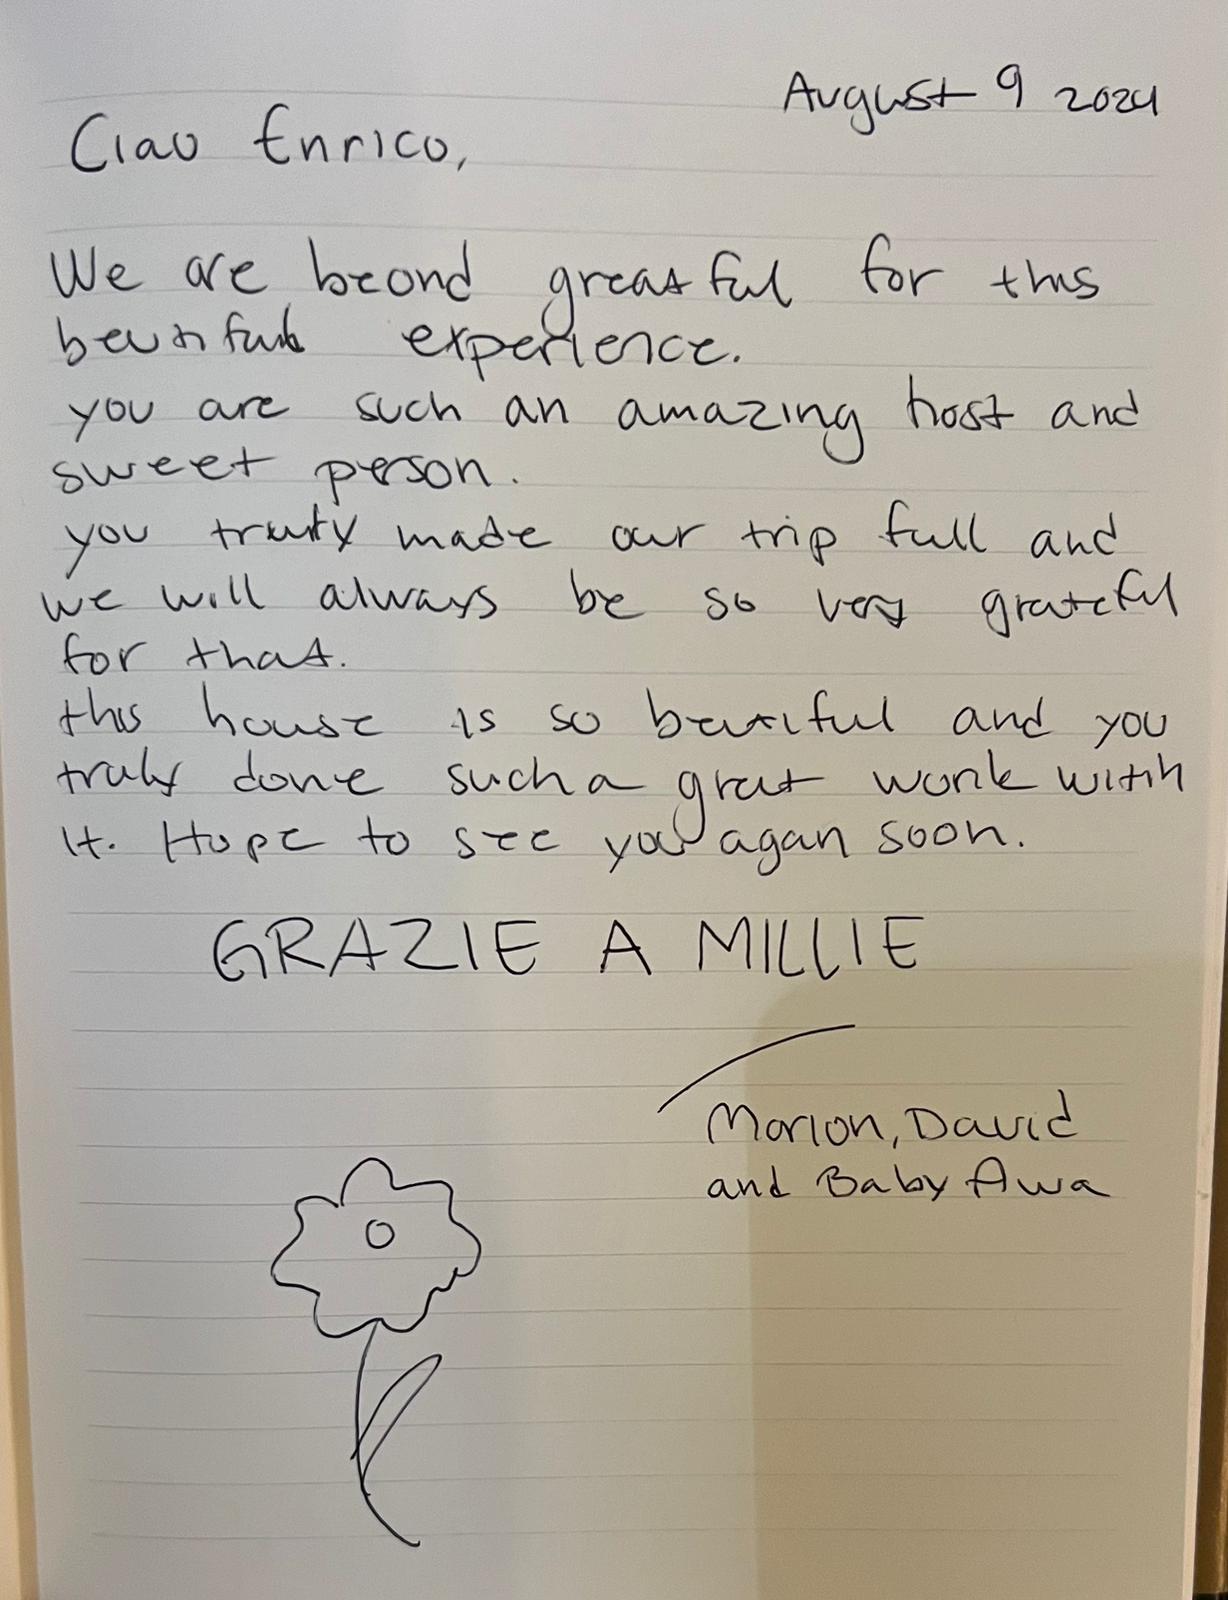 August 9 2024
Ciao Enrico,
We are beond greatful for this
beutifull experience.
you are such an amazing host and
sweet person.
you truly made our trip full and
we will always be so very grateful
for that.
this house is so beutiful and you
truly done such a great work with
it. Hope to see you agan soon.
GRAZIE A MILLIE
Marion, David
and Baby Awa